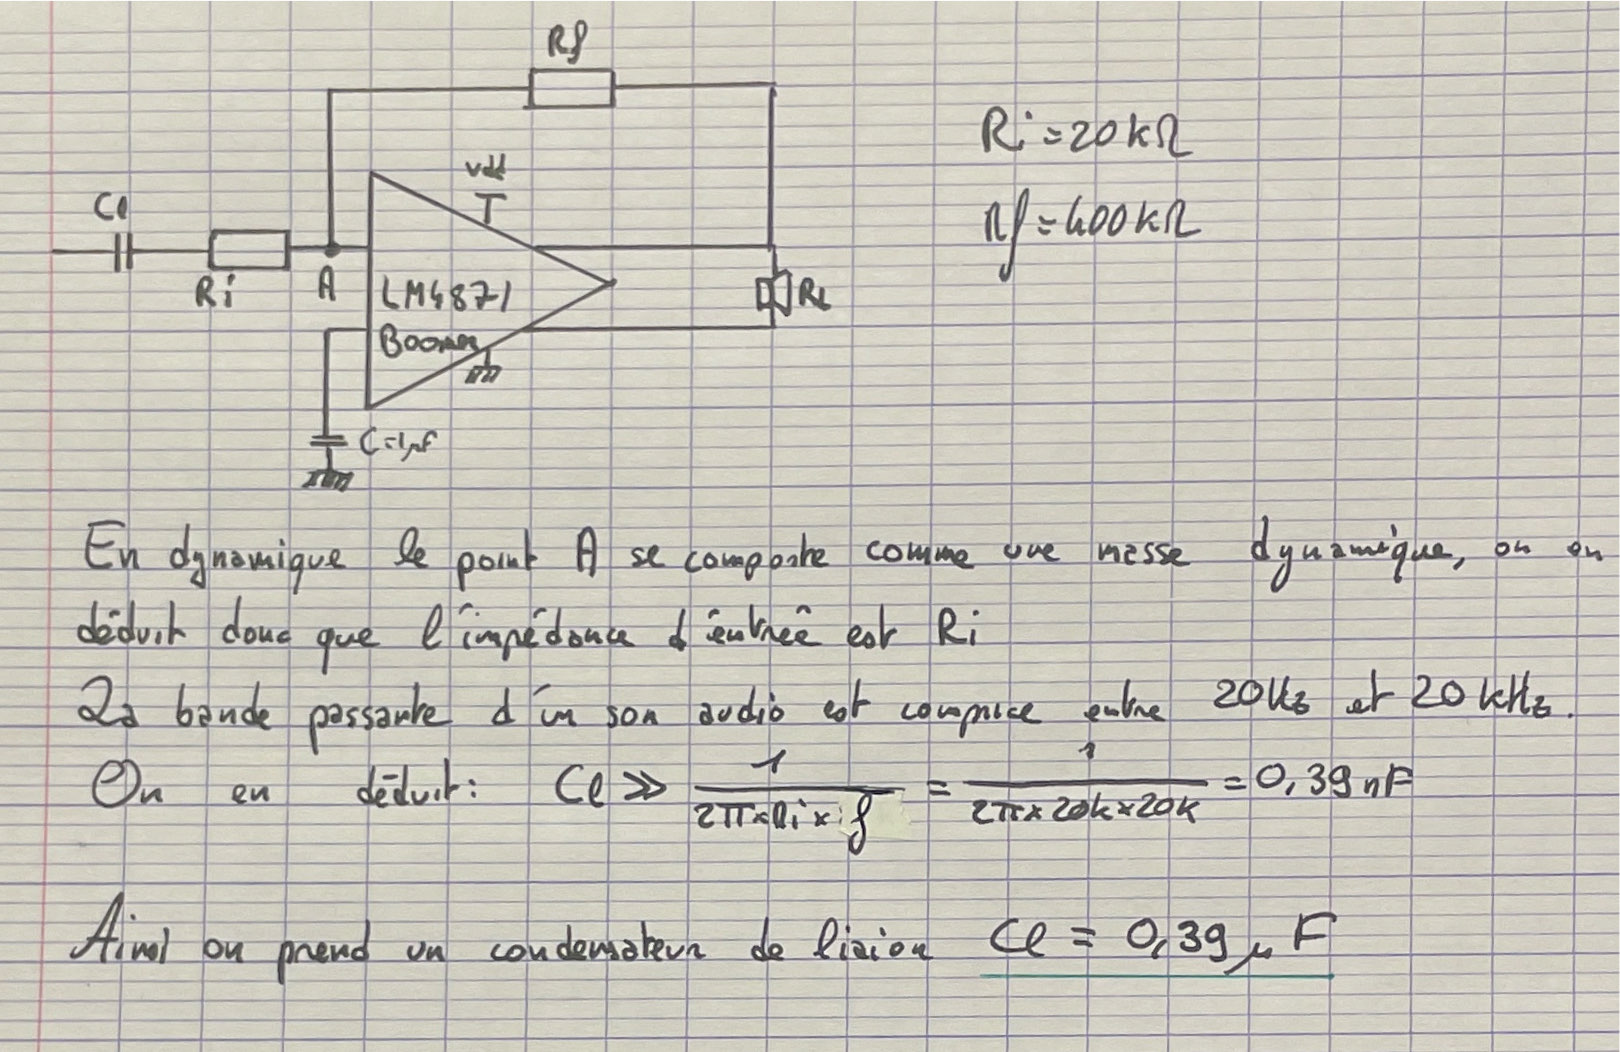 Rf
Ri = 20 kΩ
Vdd
Rf = 400 kΩ
Cl
Ri
A
LM4871
RL
Boomer
C = 1µF
En dynamique le point A se comporte comme une masse dynamique, on en
déduit donc que l'impédance d'entrée est Ri
La bande passante d'un son audio est comprise entre 20Hz et 20 kHz.
On en déduit : Cl >> 1/(2π×Ri×f) = 1/(2π×20k×20k) = 0,39 nF
Ainsi on prend un condensateur de liaion Cl = 0,39 µF